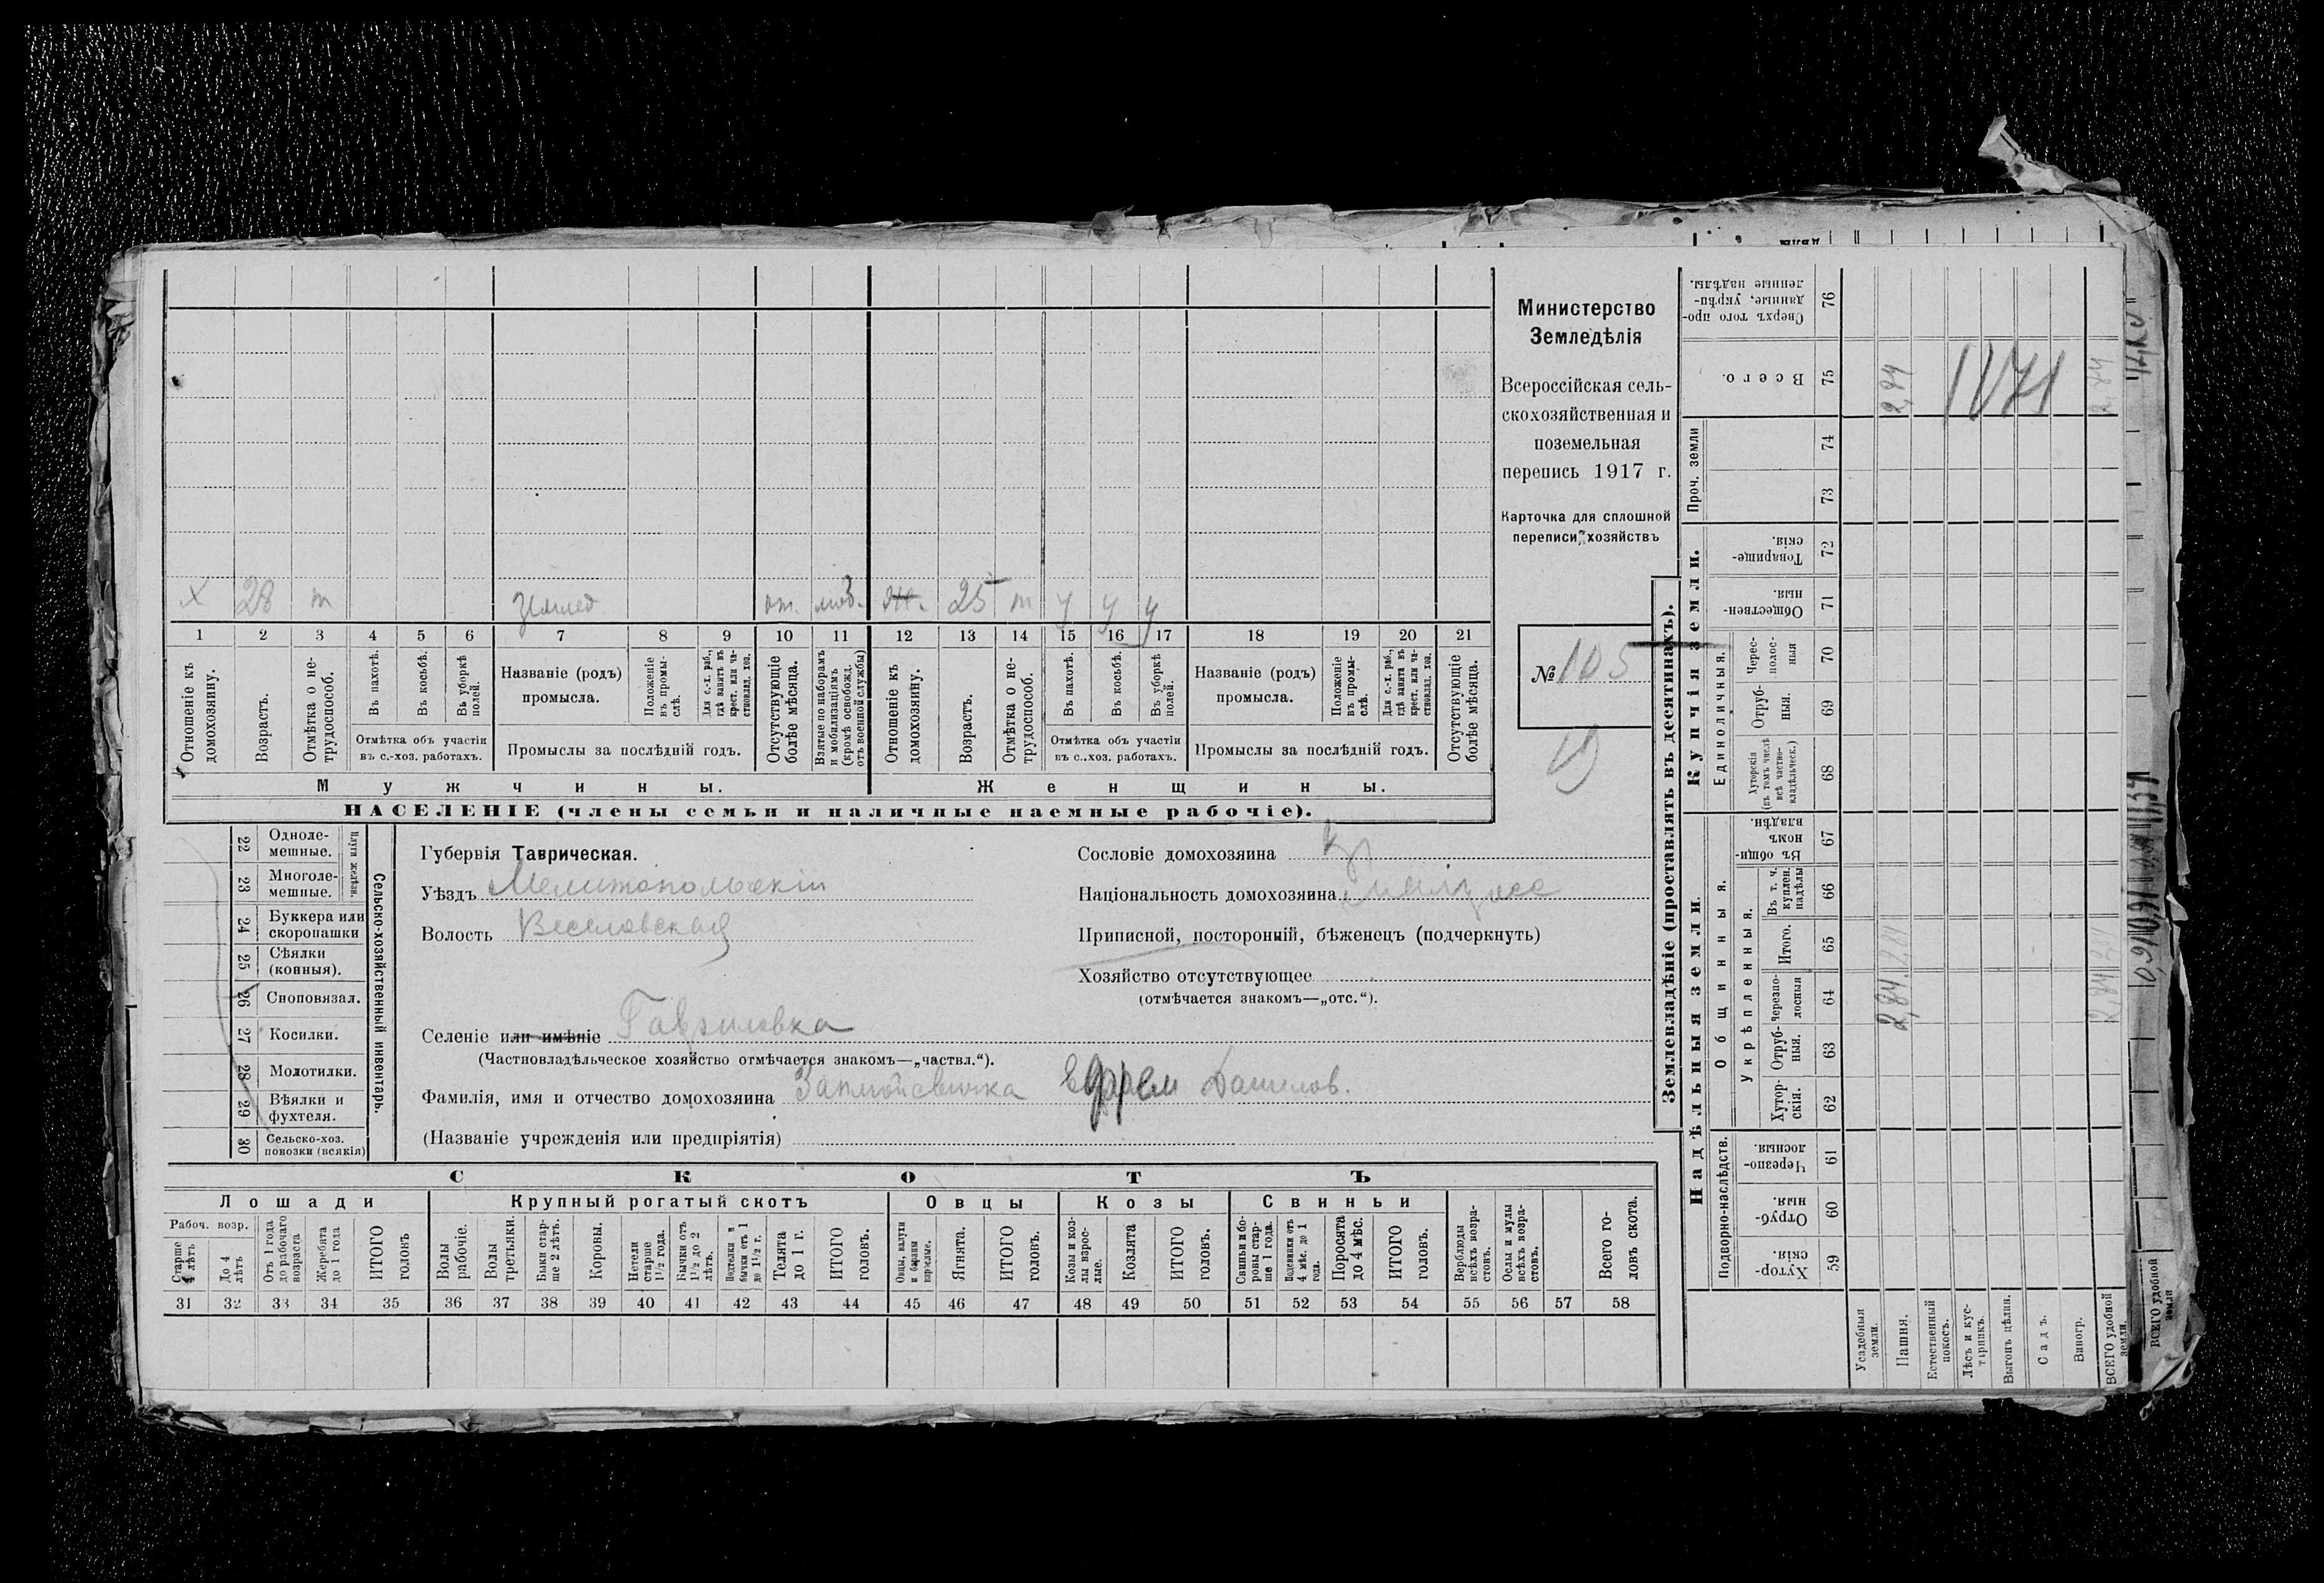 Министерство
Земледѣлія
Всероссійская сель-
скохозяйственная и
поземельная
перепись 1917 г.
Карточка для сплошной
переписи хозяйствъ
№ 105
х 28 т землед. от. моб. ж. 25 т у у у
1 2 3 4 5 6 7 8 9 10 11 12 13 14 15 16 17 18 19 20 21
Отношеніе къ домохозяину.
Возрастъ.
Отмѣтка о не-трудоспособ.
Въ пахотѣ.
Въ косьбѣ.
Въ уборкѣ полей.
Отмѣтка объ участіи въ с.-хоз. работахъ.
Названіе (родъ) промысла.
Положеніе въ промы-слѣ.
Для с.-х. раб., гдѣ занятъ въ крест. или ча-стновлад. хоз.
Промыслы за послѣдній годъ.
Отсутствующіе болѣе мѣсяца.
Взятые по наборамъ и мобилизаціямъ (кромѣ освобожд. отъ военной службы)
Отношеніе къ домохозяину.
Возрастъ.
Отмѣтка о не-трудоспособ.
Въ пахотѣ.
Въ косьбѣ.
Въ уборкѣ полей.
Отмѣтка объ участіи въ с.-хоз. работахъ.
Названіе (родъ) промысла.
Положеніе въ промы-слѣ.
Для с.-х. раб., гдѣ занята въ крест. или ча-стновлад. хоз.
Промыслы за послѣдній годъ.
Отсутствующіе болѣе мѣсяца.
Мужчины. Женщины.
НАСЕЛЕНІЕ (члены семьи и наличные наемные рабочіе).
22 Одноле-мешные.
23 Многоле-мешные.
24 Буккера или скоропашки
25 Сѣялки (конныя).
26 Сноповязал.
27 Косилки.
28 Молотилки.
29 Вѣялки и фухтеля.
30 Сельско-хоз. повозки (всякія)
Сельско-хозяйственный инвентарь.
Губернія Таврическая.
Уѣздъ Мелитопольскій
Волость Веселовская
Сословіе домохозяина Кр
Національность домохозяина
Приписной, посторонній, бѣженецъ (подчеркнуть)
Хозяйство отсутствующее
(отмѣчается знакомъ—„отс.“).
Селеніе или имѣніе Гавриловка
(Частновладѣльческое хозяйство отмѣчается знакомъ—„частвл.“).
Фамилія, имя и отчество домохозяина Ефрем Данилов.
(Названіе учрежденія или предпріятія)
СКОТЪ
Лошади Крупный рогатый скотъ Овцы Козы Свиньи
Рабоч. возр.
Старше 4 лѣтъ
До 4 лѣтъ
Отъ 1 года до рабочаго возраста
Жеребята до 1 года
ИТОГО головъ
Волы рабочіе.
Волы третьяки.
Быки стар-ше 2 лѣтъ.
Коровы.
Нетели старше 1½ года.
Бычки отъ 1½ до 2 лѣтъ.
Подтелки и бычки отъ 1 до 1½ г.
Телята до 1 г.
ИТОГО головъ.
Овцы, валухи и бараны взрослые.
Ягнята.
ИТОГО головъ.
Козы и коз-лы взрос-лые.
Козлята
ИТОГО головъ.
Свиньи и бо-ровы стар-ше 1 года.
Подсвинки отъ 4 мѣс. до 1 года.
Поросята до 4 мѣс.
ИТОГО головъ.
Верблюды всѣхъ возра-стовъ.
Ослы и мулы всѣхъ возра-стовъ.
Всего го-ловъ скота.
31 32 33 34 35 36 37 38 39 40 41 42 43 44 45 46 47 48 49 50 51 52 53 54 55 56 57 58
Землевладѣніе (проставлять въ десятинахъ).
Надѣльныя земли. Купчія земли. Проч. земли
Подворно-наслѣдств. Общинныя. Единоличныя.
Укрѣпленныя.
Хутор-скія. 59
Отруб-ныя. 60
Черезпо-лосныя 61
Хутор-скія. 62
Отруб-ныя. 63
Черезпо-лосныя 64
Итого. 65
Въ т. ч. куплен. надѣлы 66
Въ общи-номъ владѣн. 67
Хуторскія (въ томъ числѣ всѣ частно-владѣльческ.) 68
Отруб-ныя. 69
Черес-полос-ныя 70
Обществен-ныя. 71
Товарище-скія. 72
73
74
Всего. 75
Сверхъ того про-данные, укрѣп-ленные надѣлы. 76
Усадебныя земли.
Пашня. 2,84 2,84 2,84
Естественный покосъ.
Лѣсъ и кус-тарникъ.
Выгонъ цѣлин.
Садъ.
Виногр.
ВСЕГО удобной земли 2,84 2,84 2,84
ВСЕГО удобной земли